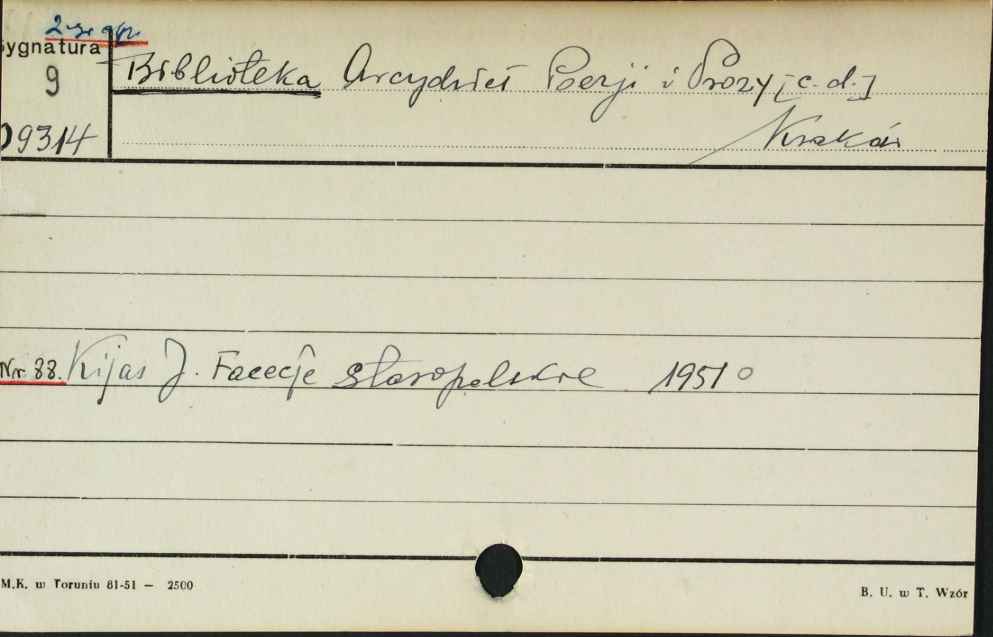 2-gi egz.
ygnatura
9
Biblioteka Arcydzieł Poezji i Prozy [c.d.]
09314
Kraków
Nr 88. Kijas J. Facecje staropolskie 1951
M.K. w Toruniu 81-51 — 2500
B. U. w T. Wzór